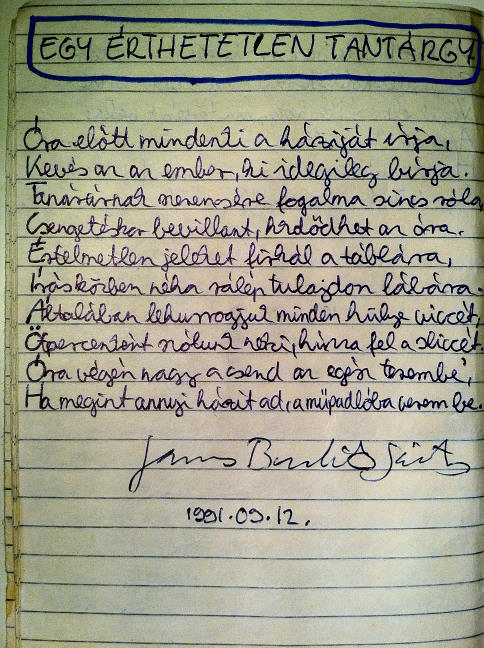 EGY ÉRTHETETLEN TANTÁRGY
Óra előtt mindenki a háziját írja,
Kevés az az ember, ki idegileg bírja.
Tanárúrnak szerencsére fogalma sincs róla,
Csengetéskor bevillant, kezdődhet az óra.
Értelmetlen jeleket firkál a táblára,
Íráskörben néha rálép tulajdon lábára.
Általában lehurrogjuk minden hülye viccét,
Ötpercenként szólunk neki, húzza fel a sliccét.
Óra végén nagy a csend az egész terembe',
Ha megint annyi házit ad, a műpadlóba verem be.
1991.09.12.